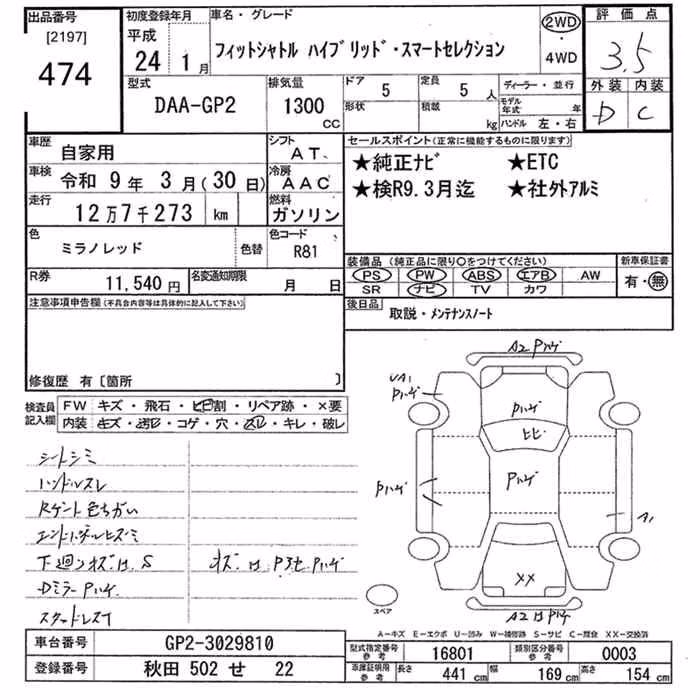 出品番号
[2197]
474
初度登録年月
平成
24 1月
車名・グレード
フィットシャトル ハイブリッド・スマートセレクション
2WD
・
4WD
評価点
3.5
外装 内装
D C
型式
DAA-GP2
排気量
1300
cc
ドア 5
形状
定員 5 人
積載 kg
ディーラー・並行
モデル年式 年
ハンドル 左・右
車歴 自家用
シフト AT
車検 令和 9年 3月(30日)
冷房 AAC
走行 12万7千273 km
燃料 ガソリン
色 ミラノレッド
色替
色コード R81
R券 11,540円
名変通知期限 月 日
セールスポイント(正常に機能するものに限ります)
★純正ナビ ★ETC
★検R9.3月迄 ★社外アルミ
装備品(純正品に限り○をつけてください)
PS PW ABS エアB AW
SR ナビ TV カワ
新車保証書
有・無
後日品 取説・メンテナンスノート
注意事項申告欄(不具合内容等は具体的に記入して下さい)
修復歴 有〔箇所 〕
検査員記入欄
FW キズ・飛石・ヒビ割・リペア跡・×要
内装 キズ・汚レ・コゲ・穴・スレ・キレ・破レ
シートシミ
ハンドルスレ
Rゲート色ちがい
エンドパネルヒズミ
下廻りキズ・S
Dミラー Pハゲ
スタッドレス
A2 Pハゲ
UA1
Pハゲ
Pハゲ
ヒビ
Pハゲ
Pハゲ
A1
XX
スペア
A2 Pハゲ
A-キズ E-エクボ U-凹み W-補修跡 S-サビ C-腐食 XX-交換済
車台番号 GP2-3029810
登録番号 秋田 502 せ 22
型式指定番号 参考 16801
類別区分番号 参考 0003
車庫証明用 参考 長さ 441 cm 幅 169 cm 高さ 154 cm